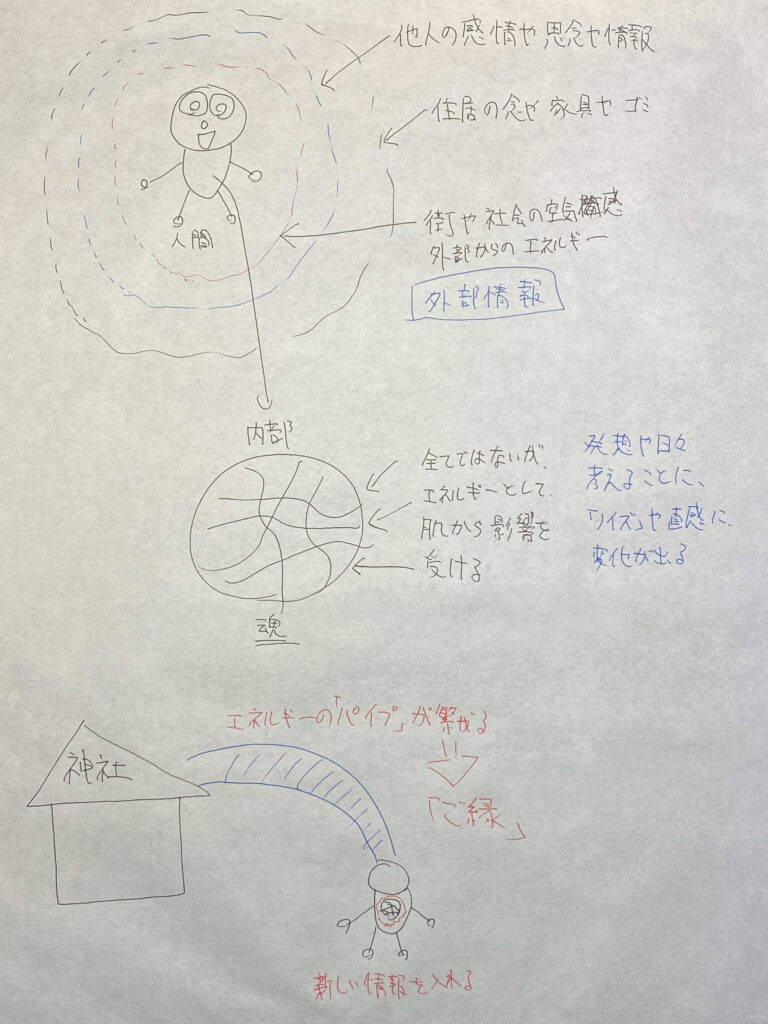 他人の感情や思念や情報
住居の念や家具やゴミ
街や社会の空気感
外部からのエネルギー
外部情報
人間
内部
全てではないが、
エネルギーとして、
肌から影響を
受ける
発想や日々
考えることに、
「ノイズ」や直感に、
変化が出る
魂
エネルギーの「パイプ」が繋がる
「ご縁」
神社
新しい情報を入れる